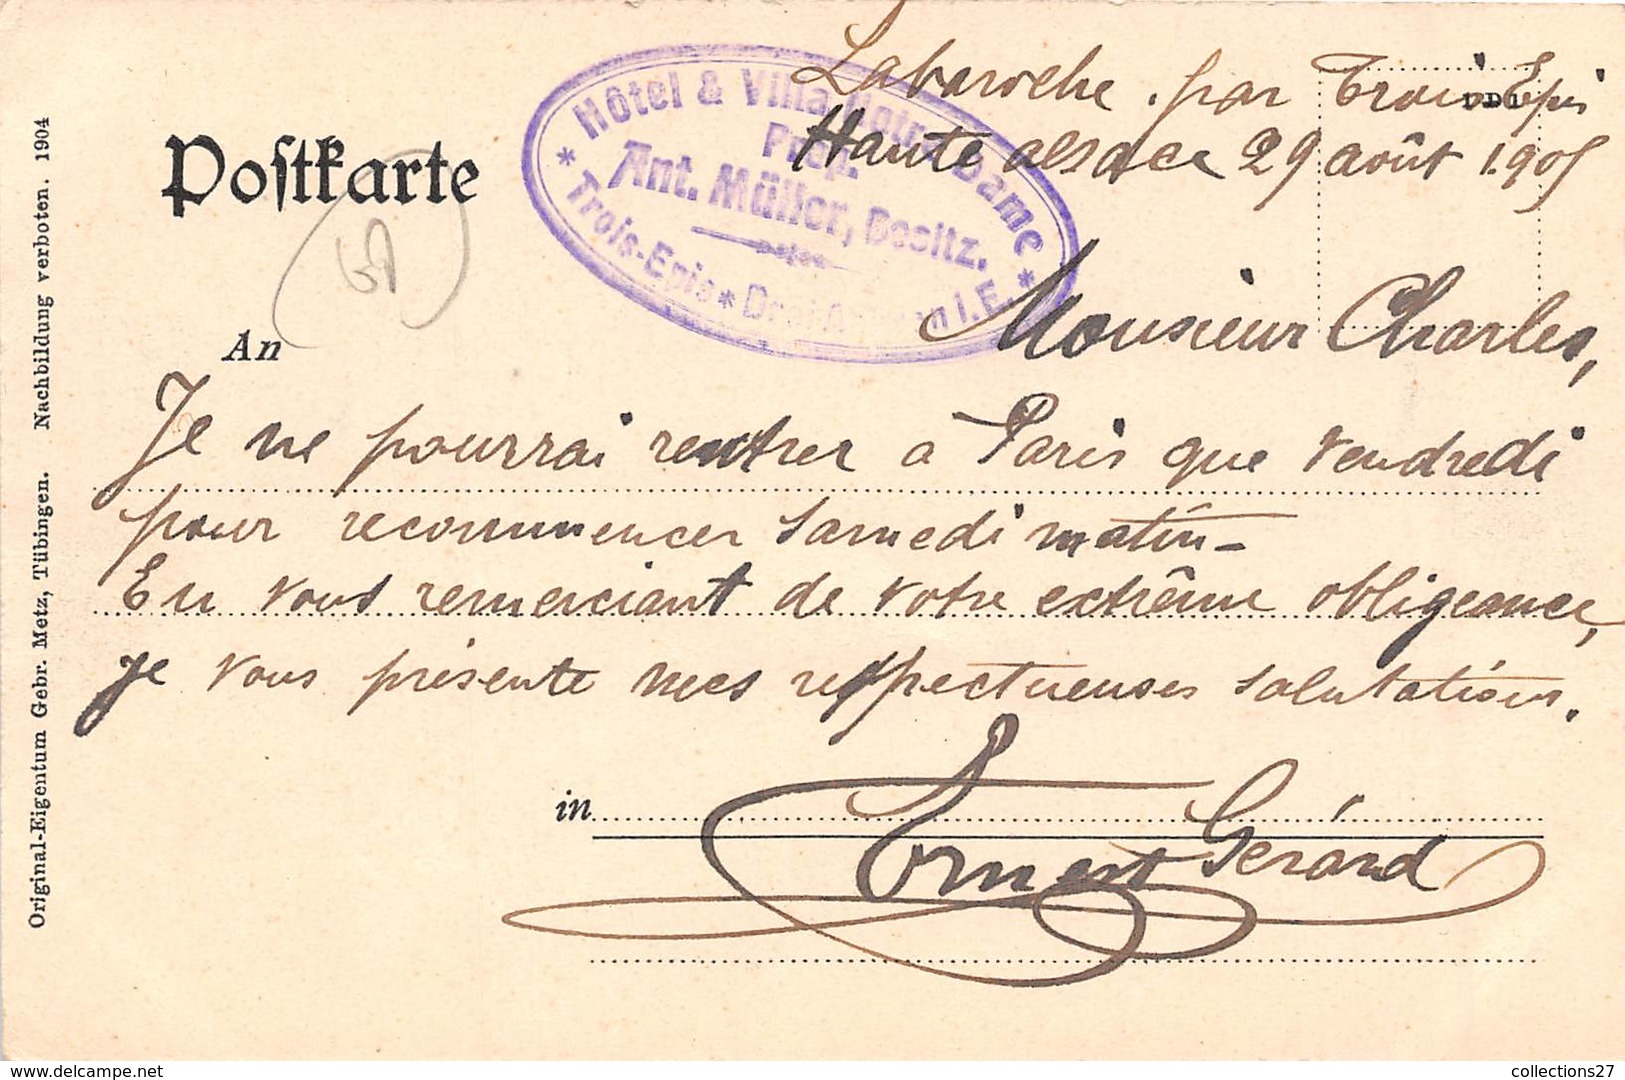 Labaroche par Trois Epis
Haute alsace 29 août 1905
Postkarte
Hôtel & Villa Notre Dame
Prop.
Ant. Müller, Besitz.
Trois-Epis * Drei-Aehren i. E.
An
Monsieur Charles,
Je ne pourrai rentrer à Paris que vendredi
pour recommencer samedi matin -
En vous remerciant de votre extrême obligeance,
je vous présente mes respectueuses salutations.
in
Ernest Gérard
Original-Eigentum Gebr. Metz, Tübingen. Nachbildung verboten. 1904
delcampe.net
collections27